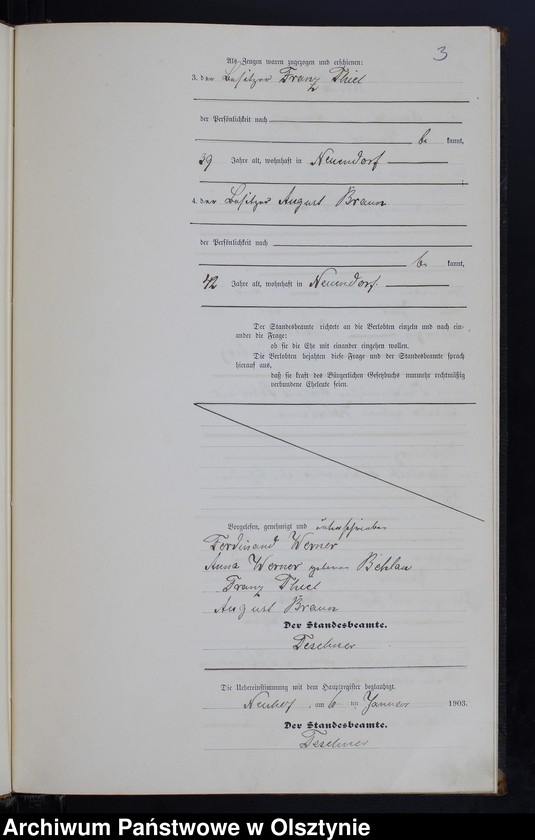 3
Als Zeugen waren zugezogen und erschienen:
3. der Besitzer Franz Thiel
der Persönlichkeit nach
be kannt,
39 Jahre alt, wohnhaft in Neuendorf
4. der Besitzer August Braun
der Persönlichkeit nach
be kannt,
42 Jahre alt, wohnhaft in Neuendorf.
Der Standesbeamte richtete an die Verlobten einzeln und nach ein-
ander die Frage:
ob sie die Ehe mit einander eingehen wollen.
Die Verlobten bejahten diese Frage und der Standesbeamte sprach
hierauf aus,
daß sie kraft des Bürgerlichen Gesetzbuchs nunmehr rechtmäßig
verbundene Eheleute seien.
Vorgelesen, genehmigt und unterschrieben
Ferdinand Werner
Anna Werner geborene Behlau
Franz Thiel
August Braun
Der Standesbeamte.
Teschner
Die Uebereinstimmung mit dem Hauptregister beglaubigt.
Neuhof, am 6 ten Januar 1903.
Der Standesbeamte.
Teschner
Archiwum Państwowe w Olsztynie